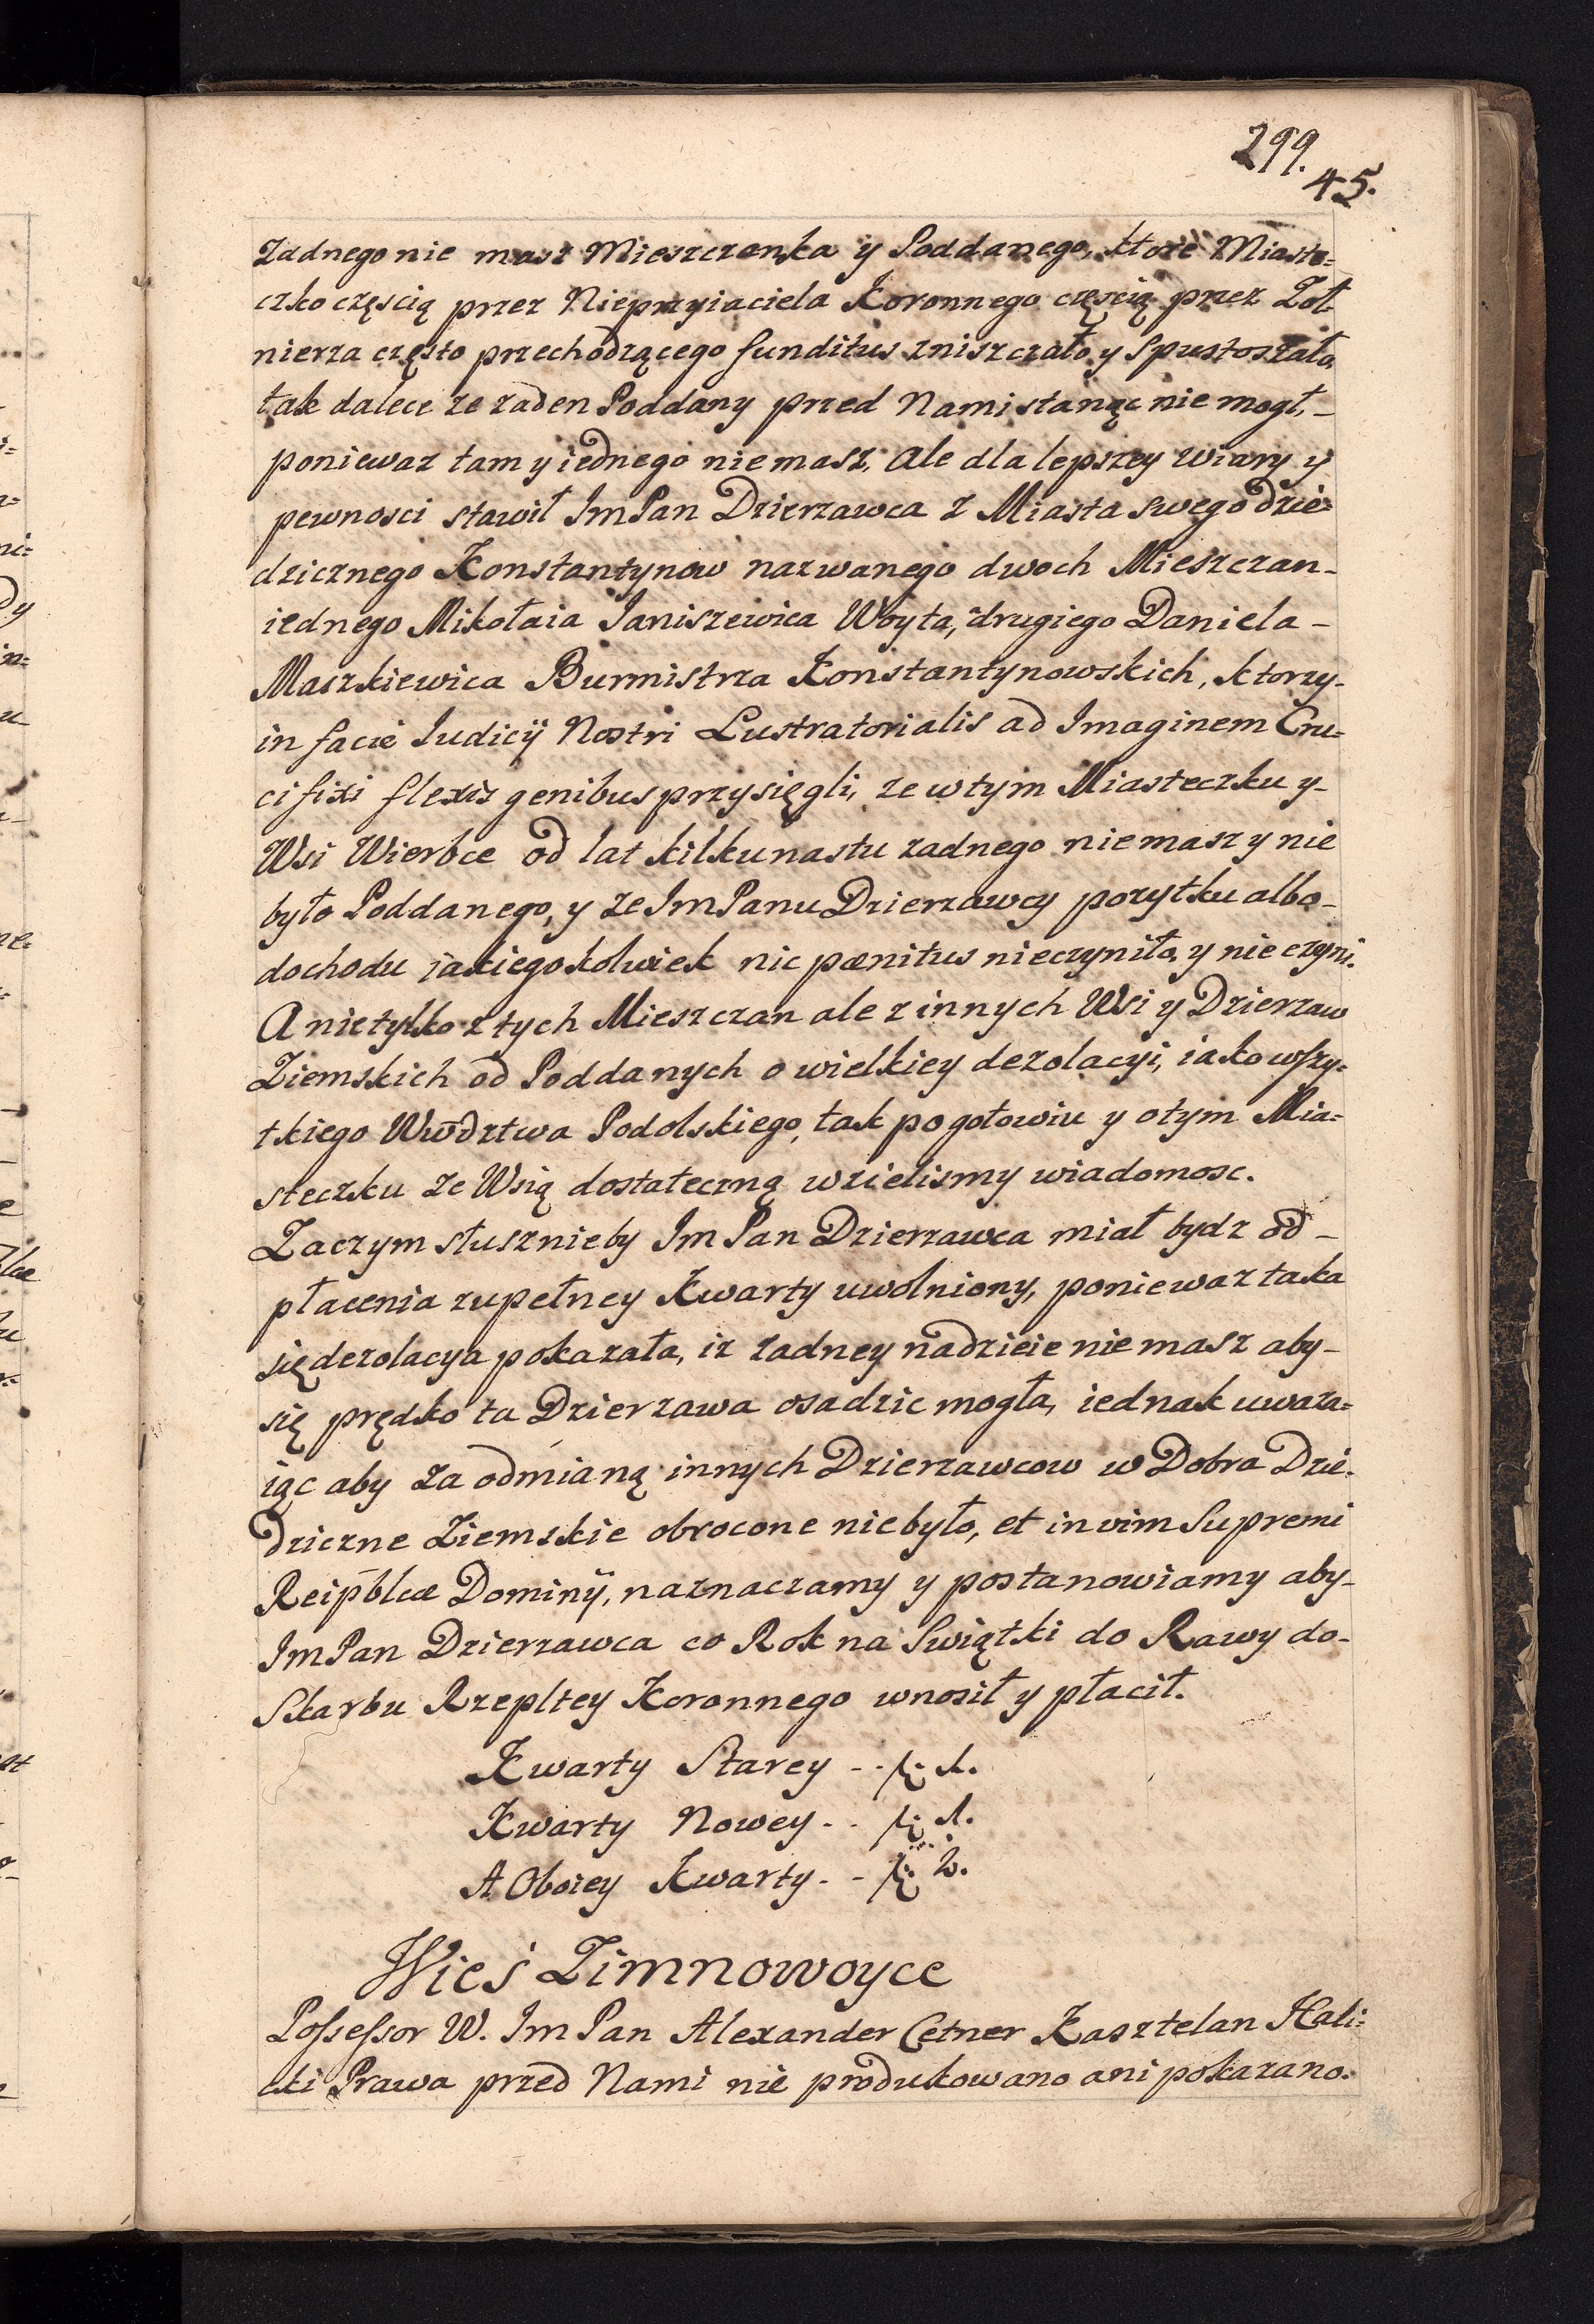 299.
45.
Zadnego nie masz Mieszczanka y Poddanego, ktore Miaste=
czko częscią przez Nieprzyiaciela Koronnego częscią przez Zoł-
nierza często przechodzącego funditus zniszczało y Spustoszało,
tak dalece ze zaden Poddany przed Nami stanąc nie mogł, -
poniewaz tam y iednego nie masz, Ale dla lepszey wiary y
pewnosci stawił Im Pan Dzierzawca z Miasta swego dzie=
dzicznego Konstantynow nazwanego dwoch Mieszczan-
iednego Mikołaia Ianiszewica Woyta, drugiego Daniela -
Maszkiewica Burmistrza Konstantynowskich, ktorzy-
in facie Iudicÿ Nostri Lustratorialis ad Imaginem Cru=
cifixi flexis genibus przysięgli, ze w tym Miasteczku y-
Wsi Wierbce od lat kilkunastu zadnego nie masz y nie
było Poddanego, y ze Im Panu Dzierzawcy pozytku albo-
dochodu iakiegokolwiek nic pænitus nie czyniło, y nie czyni.
A nie tylko z tych Mieszczan ale z innych Wsi y Dzierzaw
Ziemskich od Poddanych o wielkiey dezolacyi, iako wszy=
tkiego Wwdztwa Podolskiego, tak pogotowiu y o tym Mia=
steczku ze Wsią dostateczną wzielismy wiadomosc.
Zaczym słusznie by Im Pan Dzierzawca miał bydz od -
płacenia zupełney Kwarty uwolniony, poniewaz taka
się dezolacya pokazała, iz zadney nadzieie nie masz aby-
się prędko ta Dzierzawa osadzic mogła, iednak uwaza=
iąc aby za odmianą innych Dzierzawcow w Dobra Dzie=
dziczne Ziemskie obrocone nie było, et in vim Supremi
Reipblcæ Dominÿ, naznaczamy y postanowiamy aby-
Im Pan Dzierzawca co Rok na Swiątki do Rawy do-
Skarbu Rzepltey Koronnego wnosił y płacił.
Kwarty Starey - .
Kwarty Nowey - .
A Oboiey Kwarty - -
Wieś Zimnowoyce
Possessor W. Im Pan Alexander Cetner Kasztelan Hali=
cki Prawa przed Nami nie produkowano ani pokazano.